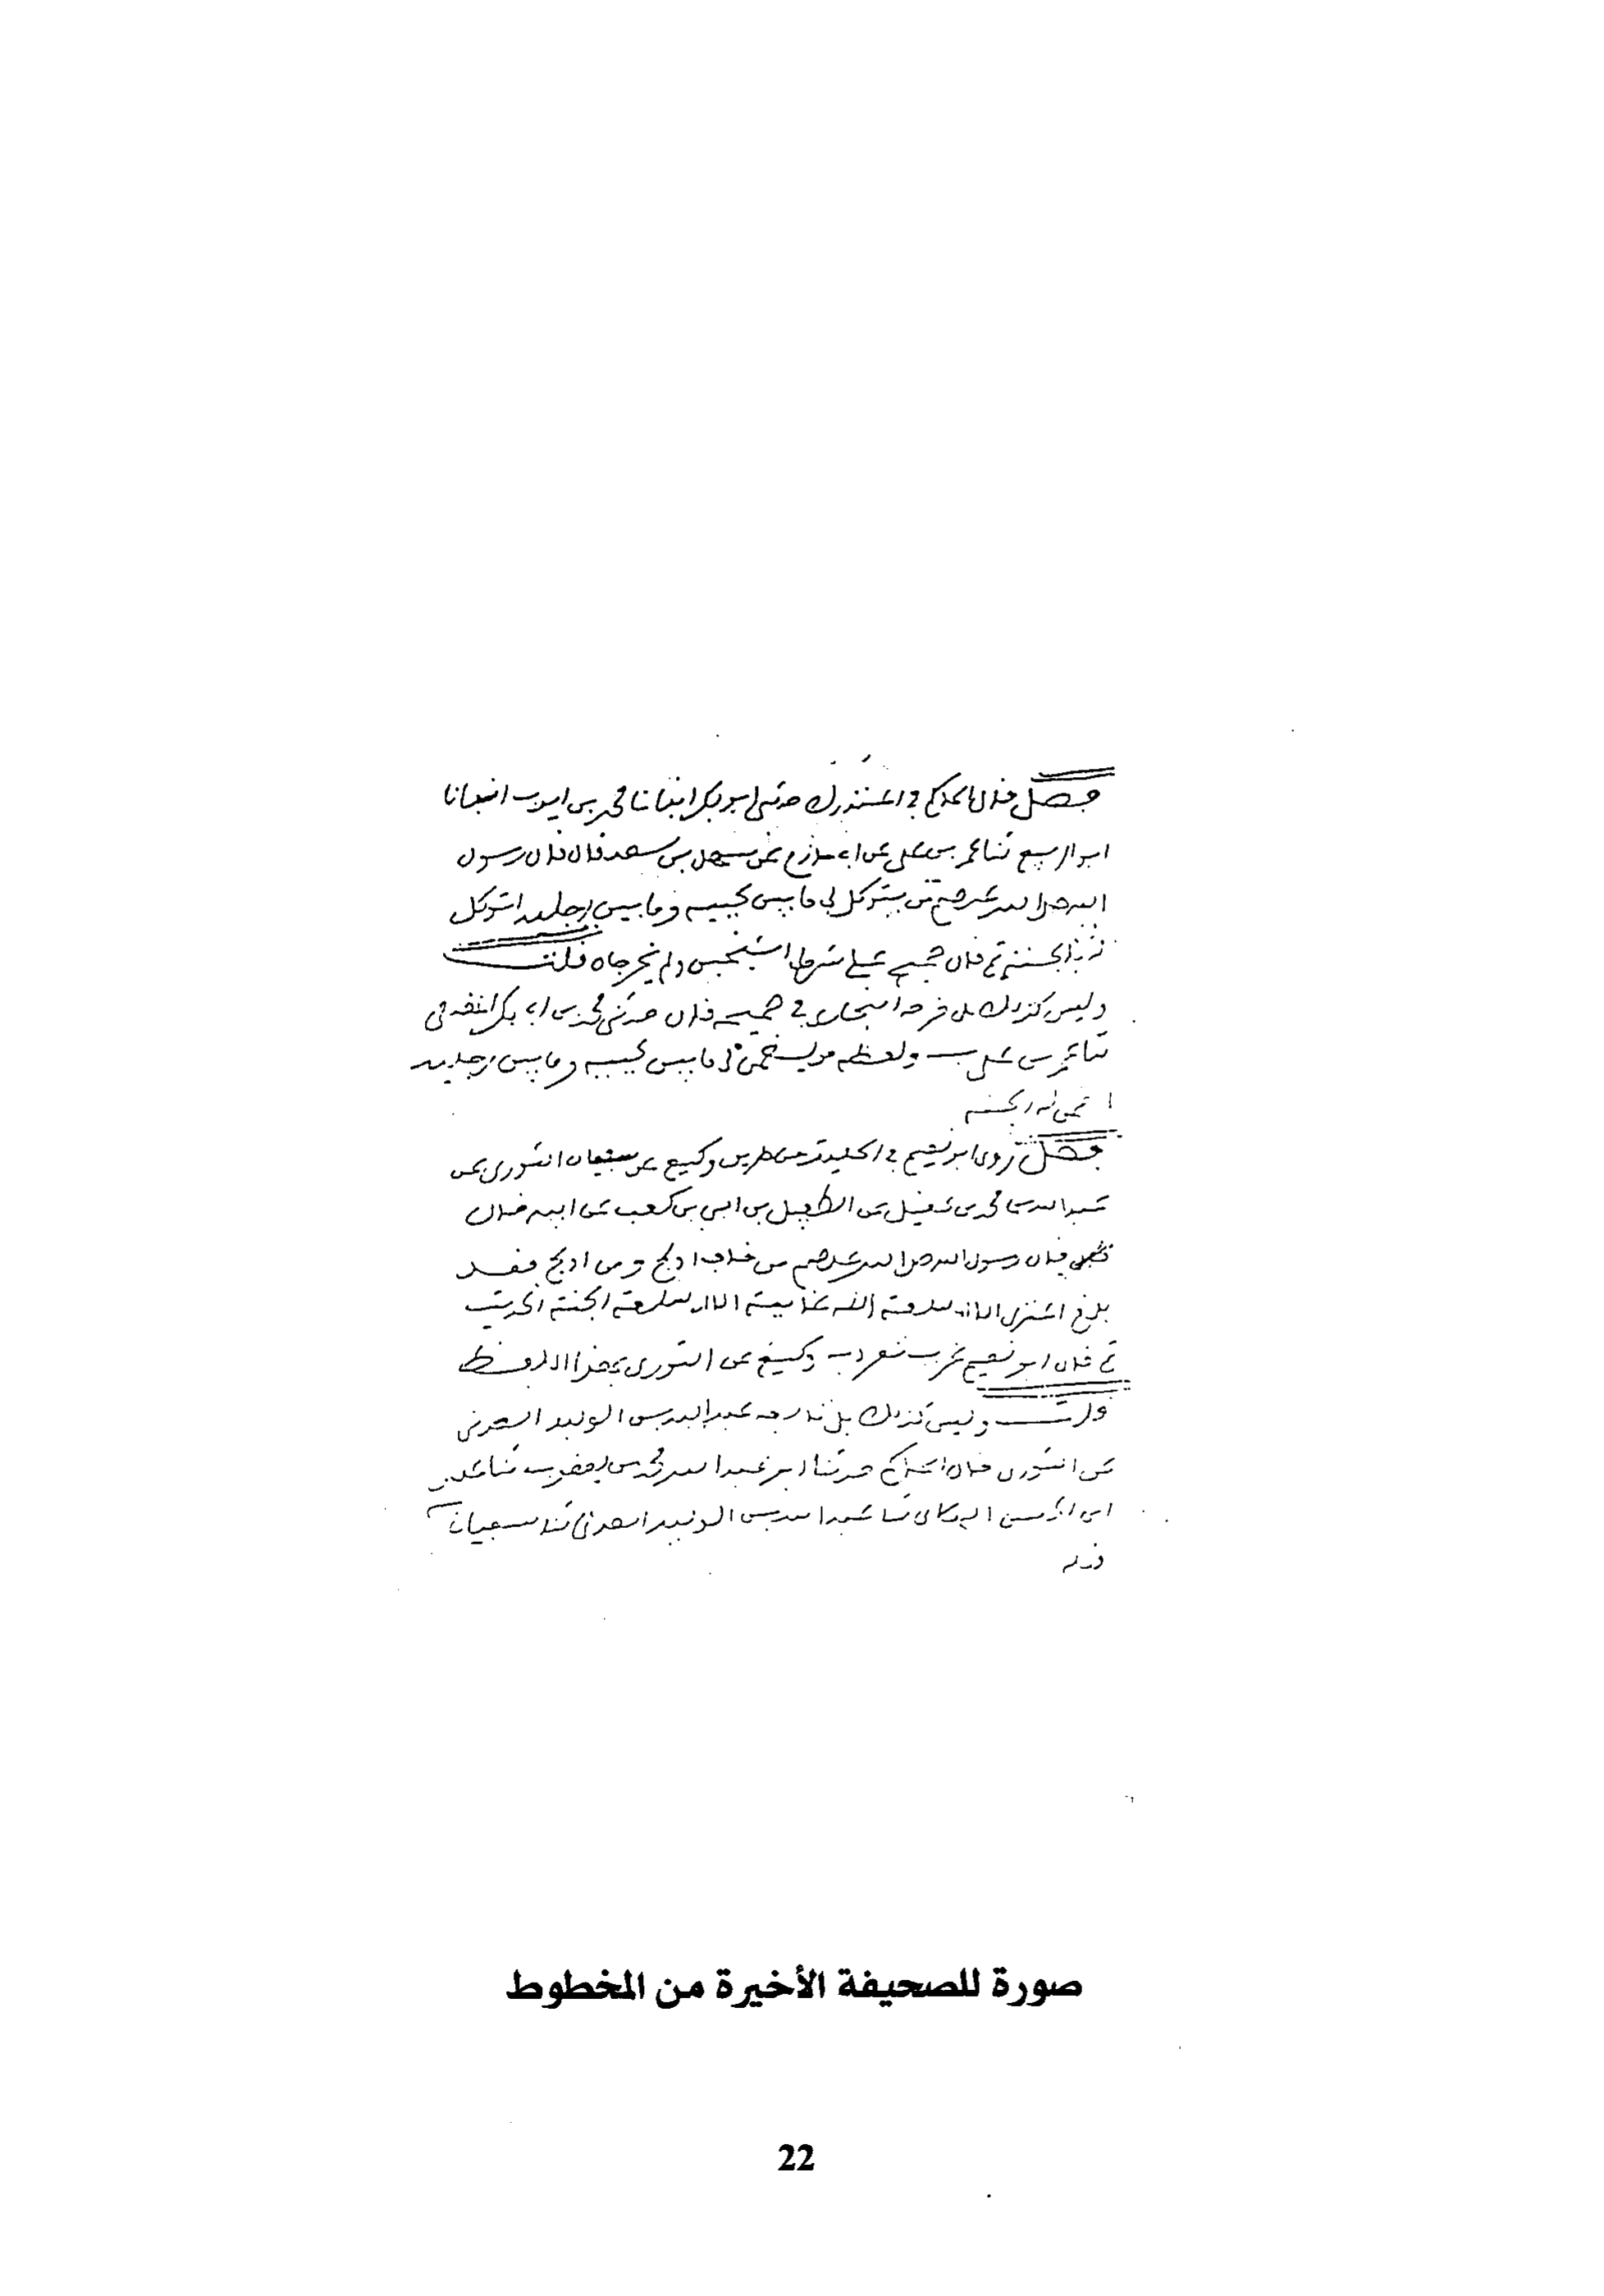 فصل قال الحاكم في المستدرك حدثني ابو بكر انبانا محمد بن ايوب انبانا
ابو الربيع ثنا عمر بن علي عن ابي حازم عن سهل بن سعد قال قال رسول
الله صلى الله عليه من يتوكل لي ما بين لحييه وما بين رجليه اتوكل
له بالجنة ثم قال صحيح على شرط الشيخين ولم يخرجاه قلت
وليس كذلك فـ البخاري في صحيحه قال حدثني محمد بن ابي بكر المقدمي
ثنا عمر بن علي به ولفظه من يضمن لي ما بين لحييه وما بين رجليه
اضمن له الجنة
فصل روى ابو نعيم في الحلية من طريق وكيع عن سفيان الثوري عن
عبد الله بن محمد بن عقيل عن الطفيل بن ابي بن كعب عن ابيه قال
قال رسول الله صلى الله عليه من خاف ادلج ومن ادلج فقد
بلغ المنزل الا ان سلعة الله غالية الا ان سلعة الله الجنة الحديث
ثم قال ابو نعيم غريب تفرد به وكيع عن الثوري بهذا اللفظ
قلت وليس كذلك بل تابعه عبد الله بن الوليد العدني
عن الثوري قال الحاكم حدثنا ابو عبد الله محمد بن يعقوب ثنا علي
ابن الحسن الهلالي ثنا عبد الله بن الوليد العدني ثنا سفيان
فذكره
صورة للصحيفة الأخيرة من المخطوط
22